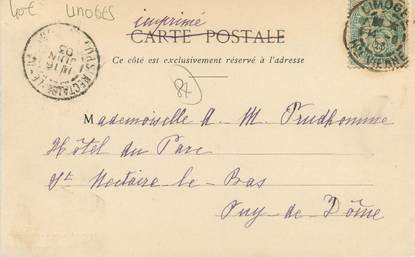 40€ LIMOGES
imprimé
CARTE POSTALE
Ce côté est exclusivement réservé à l'adresse
LIMOGES
Hte VIENNE
ST NECTAIRE-LE-
16
JUIN
03
87
Mademoiselle A. M. Prudhomme
Hôtel du Parc
St. Nectaire le-Bas
Puy-de-Dôme